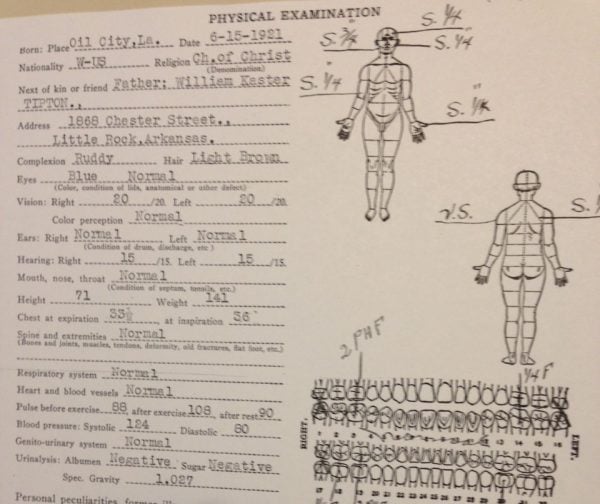 PHYSICAL EXAMINATION
Born: Place Oil City, La. Date 6-15-1921
Nationality W-US Religion Ch. of Christ
(Denomination)
Next of kin or friend Father: William Kaster
TIPTON.,
Address 1868 Chester Street.,
Little Rock, Arkansas.
Complexion Ruddy Hair Light Brown
Eyes Blue Normal
(Color, condition of lids, anatomical or other defect)
Vision: Right 20 /20. Left 20 /20.
Color perception Normal
Ears: Right Normal Left Normal
(Condition of drum, discharge, etc.)
Hearing: Right 15 /15. Left 15 /15.
Mouth, nose, throat Normal
(Condition of septum, tonsils, etc.)
Height 71 Weight 141
Chest at expiration 33½ at inspiration 36
Spine and extremities Normal
(Bones and joints, muscles, tendons, deformity, old fractures, flat foot, etc.)
Respiratory system Normal
Heart and blood vessels Normal
Pulse before exercise 88, after exercise 108, after rest 90
Blood pressure: Systolic 124 Diastolic 80
Genito-urinary system Normal
Urinalysis: Albumen Negative Sugar Negative
Spec. Gravity 1.027
Personal peculiarities,
S. 1/4"
S. 3/4"
S. 1/4
S. 1/4"
v.S.
2 PHF
1/4 F
RIGHT.
LEFT.